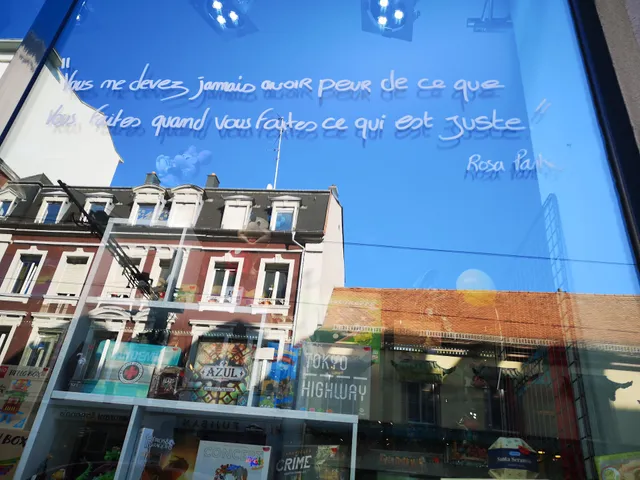 "Vous me devez jamais avoir peur de ce que
Vous faites quand vous faites ce qui est juste"
Rosa Park
AZUL
TOKYO
HIGHWAY
BOX
CRIME